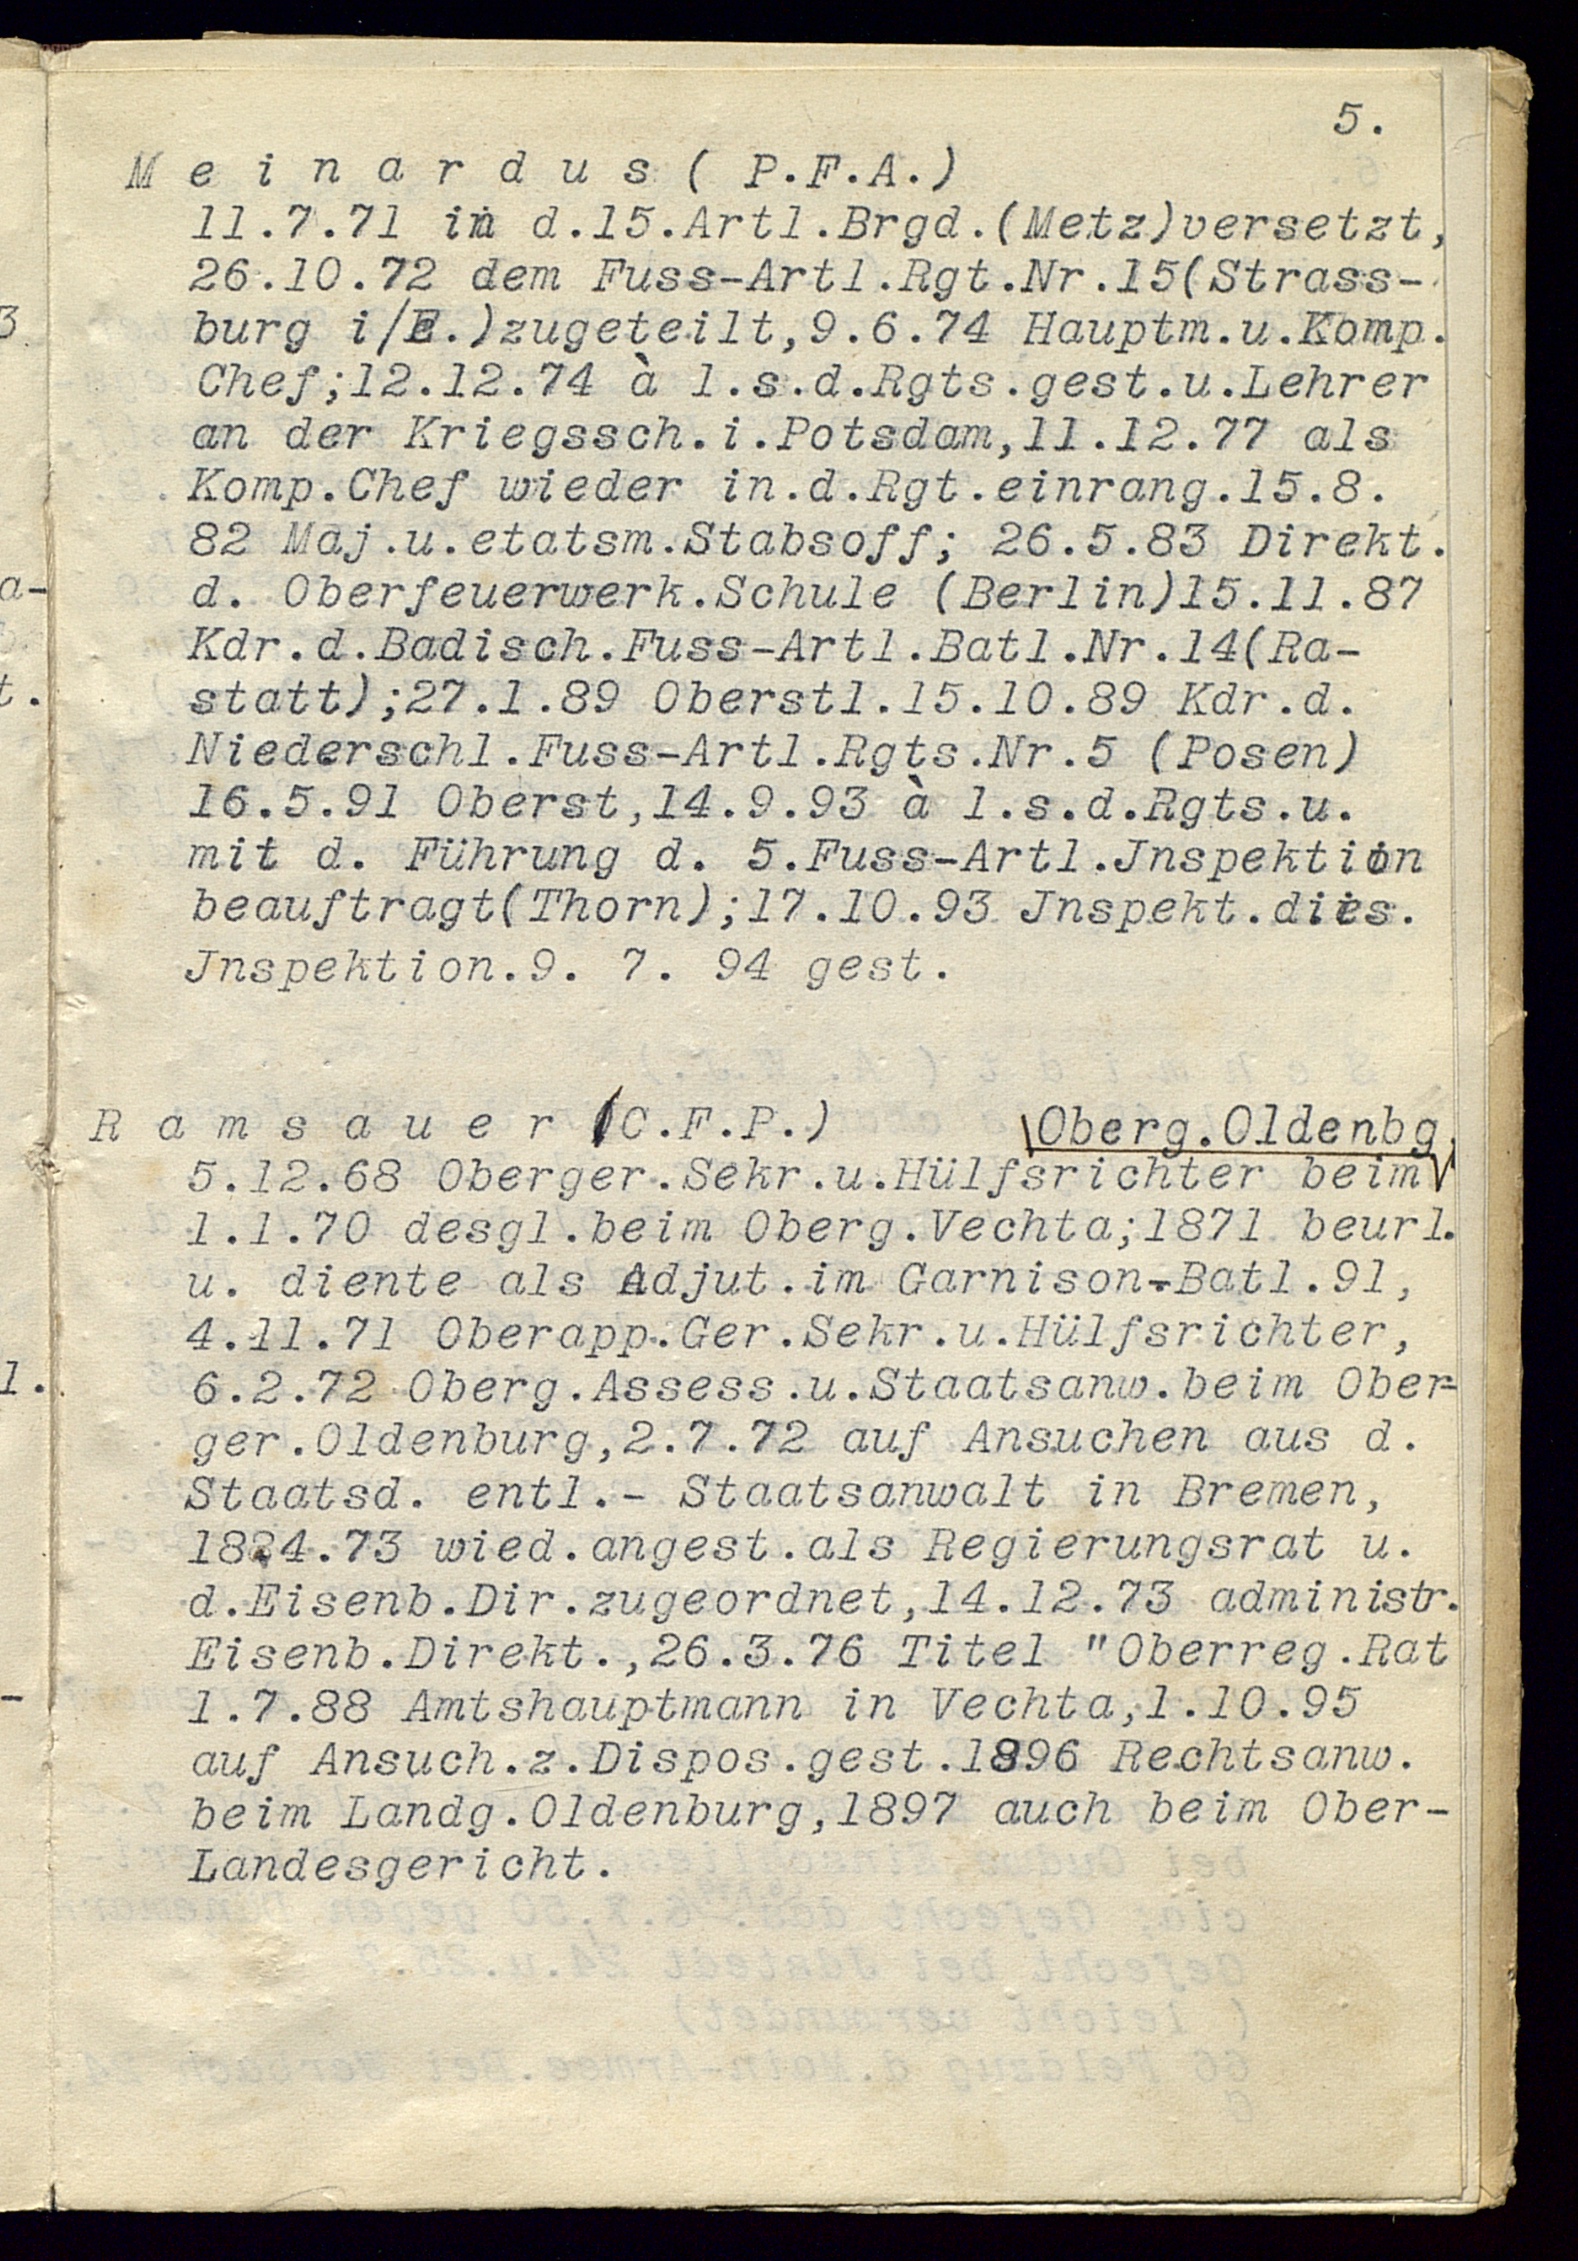 5.
M e i n a r d u s ( P.F.A.)
11.7.71 in d.15.Artl.Brgd.(Metz)versetzt,
26.10.72 dem Fuss-Artl.Rgt.Nr.15(Strass-
burg i/E.)zugeteilt,9.6.74 Hauptm.u.Komp.
Chef;12.12.74 à l.s.d.Rgts.gest.u.Lehrer
an der Kriegssch.i.Potsdam,11.12.77 als
Komp.Chef wieder in.d.Rgt.einrang.15.8.
82 Maj.u.etatsm.Stabsoff; 26.5.83 Direkt.
d. Oberfeuerwerk.Schule (Berlin)15.11.87
Kdr.d.Badisch.Fuss-Artl.Batl.Nr.14(Ra-
statt);27.1.89 Oberstl.15.10.89 Kdr.d.
Niederschl.Fuss-Artl.Rgts.Nr.5 (Posen)
16.5.91 Oberst,14.9.93 à l.s.d.Rgts.u.
mit d. Führung d. 5.Fuss-Artl.Jnspektion
beauftragt(Thorn);17.10.93 Jnspekt.dies.
Jnspektion.9. 7. 94 gest.
R a m s a u e r (C.F.P.) Oberg.Oldenbg.
5.12.68 Oberger.Sekr.u.Hülfsrichter beim
1.1.70 desgl.beim Oberg.Vechta;1871 beurl.
u. diente als Adjut.im Garnison-Batl.91,
4.11.71 Oberapp.Ger.Sekr.u.Hülfsrichter,
6.2.72 Oberg.Assess.u.Staatsanw.beim Ober-
ger.Oldenburg,2.7.72 auf Ansuchen aus d.
Staatsd. entl.- Staatsanwalt in Bremen,
wied.angest.als Regierungsrat u.
d.Eisenb.Dir.zugeordnet,14.12.73 administr.
Eisenb.Direkt.,26.3.76 Titel "Oberreg.Rat
1.7.88 Amtshauptmann in Vechta,1.10.95
auf Ansuch.z.Dispos.gest.1896 Rechtsanw.
beim Landg.Oldenburg,1897 auch beim Ober-
Landesgericht.